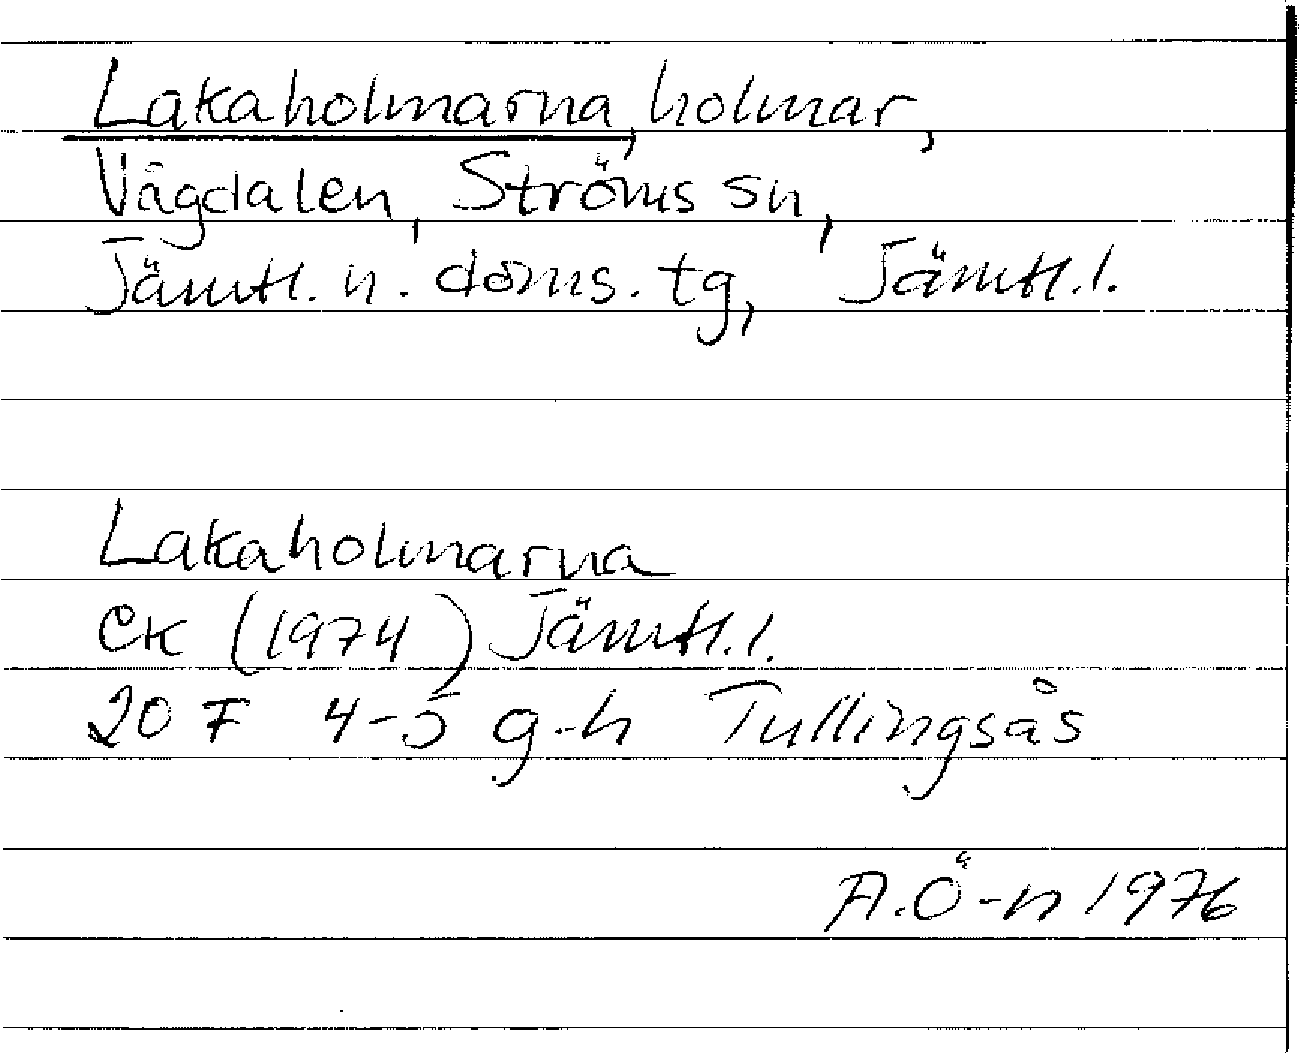 Lakaholmarna, holmar,
Vågdalen, Ströms sn,
Jämtl. n. doms. tg, Jämtl.l.
Lakaholmarna
EK (1974) Jämtl.l.
20 F 4-5 g-h Tullingsås
A.Ö-n 1976